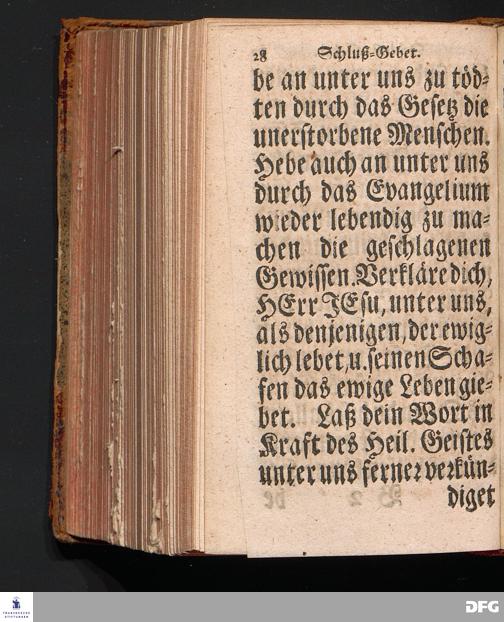 28 Schluß-Gebet.
be an unter uns zu töd-
ten durch das Gesetz die
unerstorbene Menschen.
Hebe auch an unter uns
durch das Evangelium
wieder lebendig zu ma-
chen die geschlagenen
Gewissen. Verkläre dich,
HErr JEsu, unter uns,
als denjenigen, der ewig-
lich lebet, u. seinen Scha-
fen das ewige Leben gie-
bet. Laß dein Wort in
Kraft des Heil. Geistes
unter uns ferner verkün-
diget
FRANCKESCHE
STIFTUNGEN
DFG